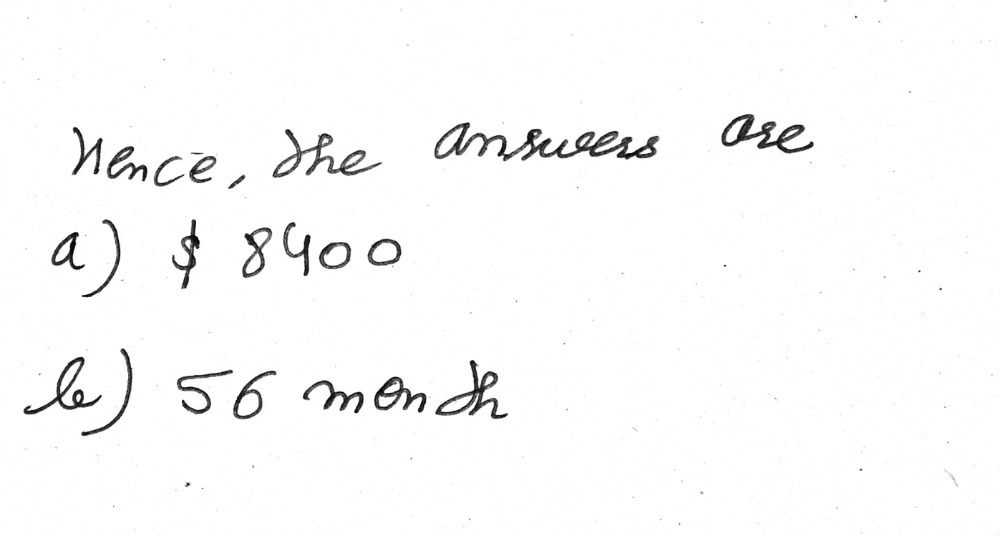 Hence, the answers are
a) $ 8400
b) 56 month